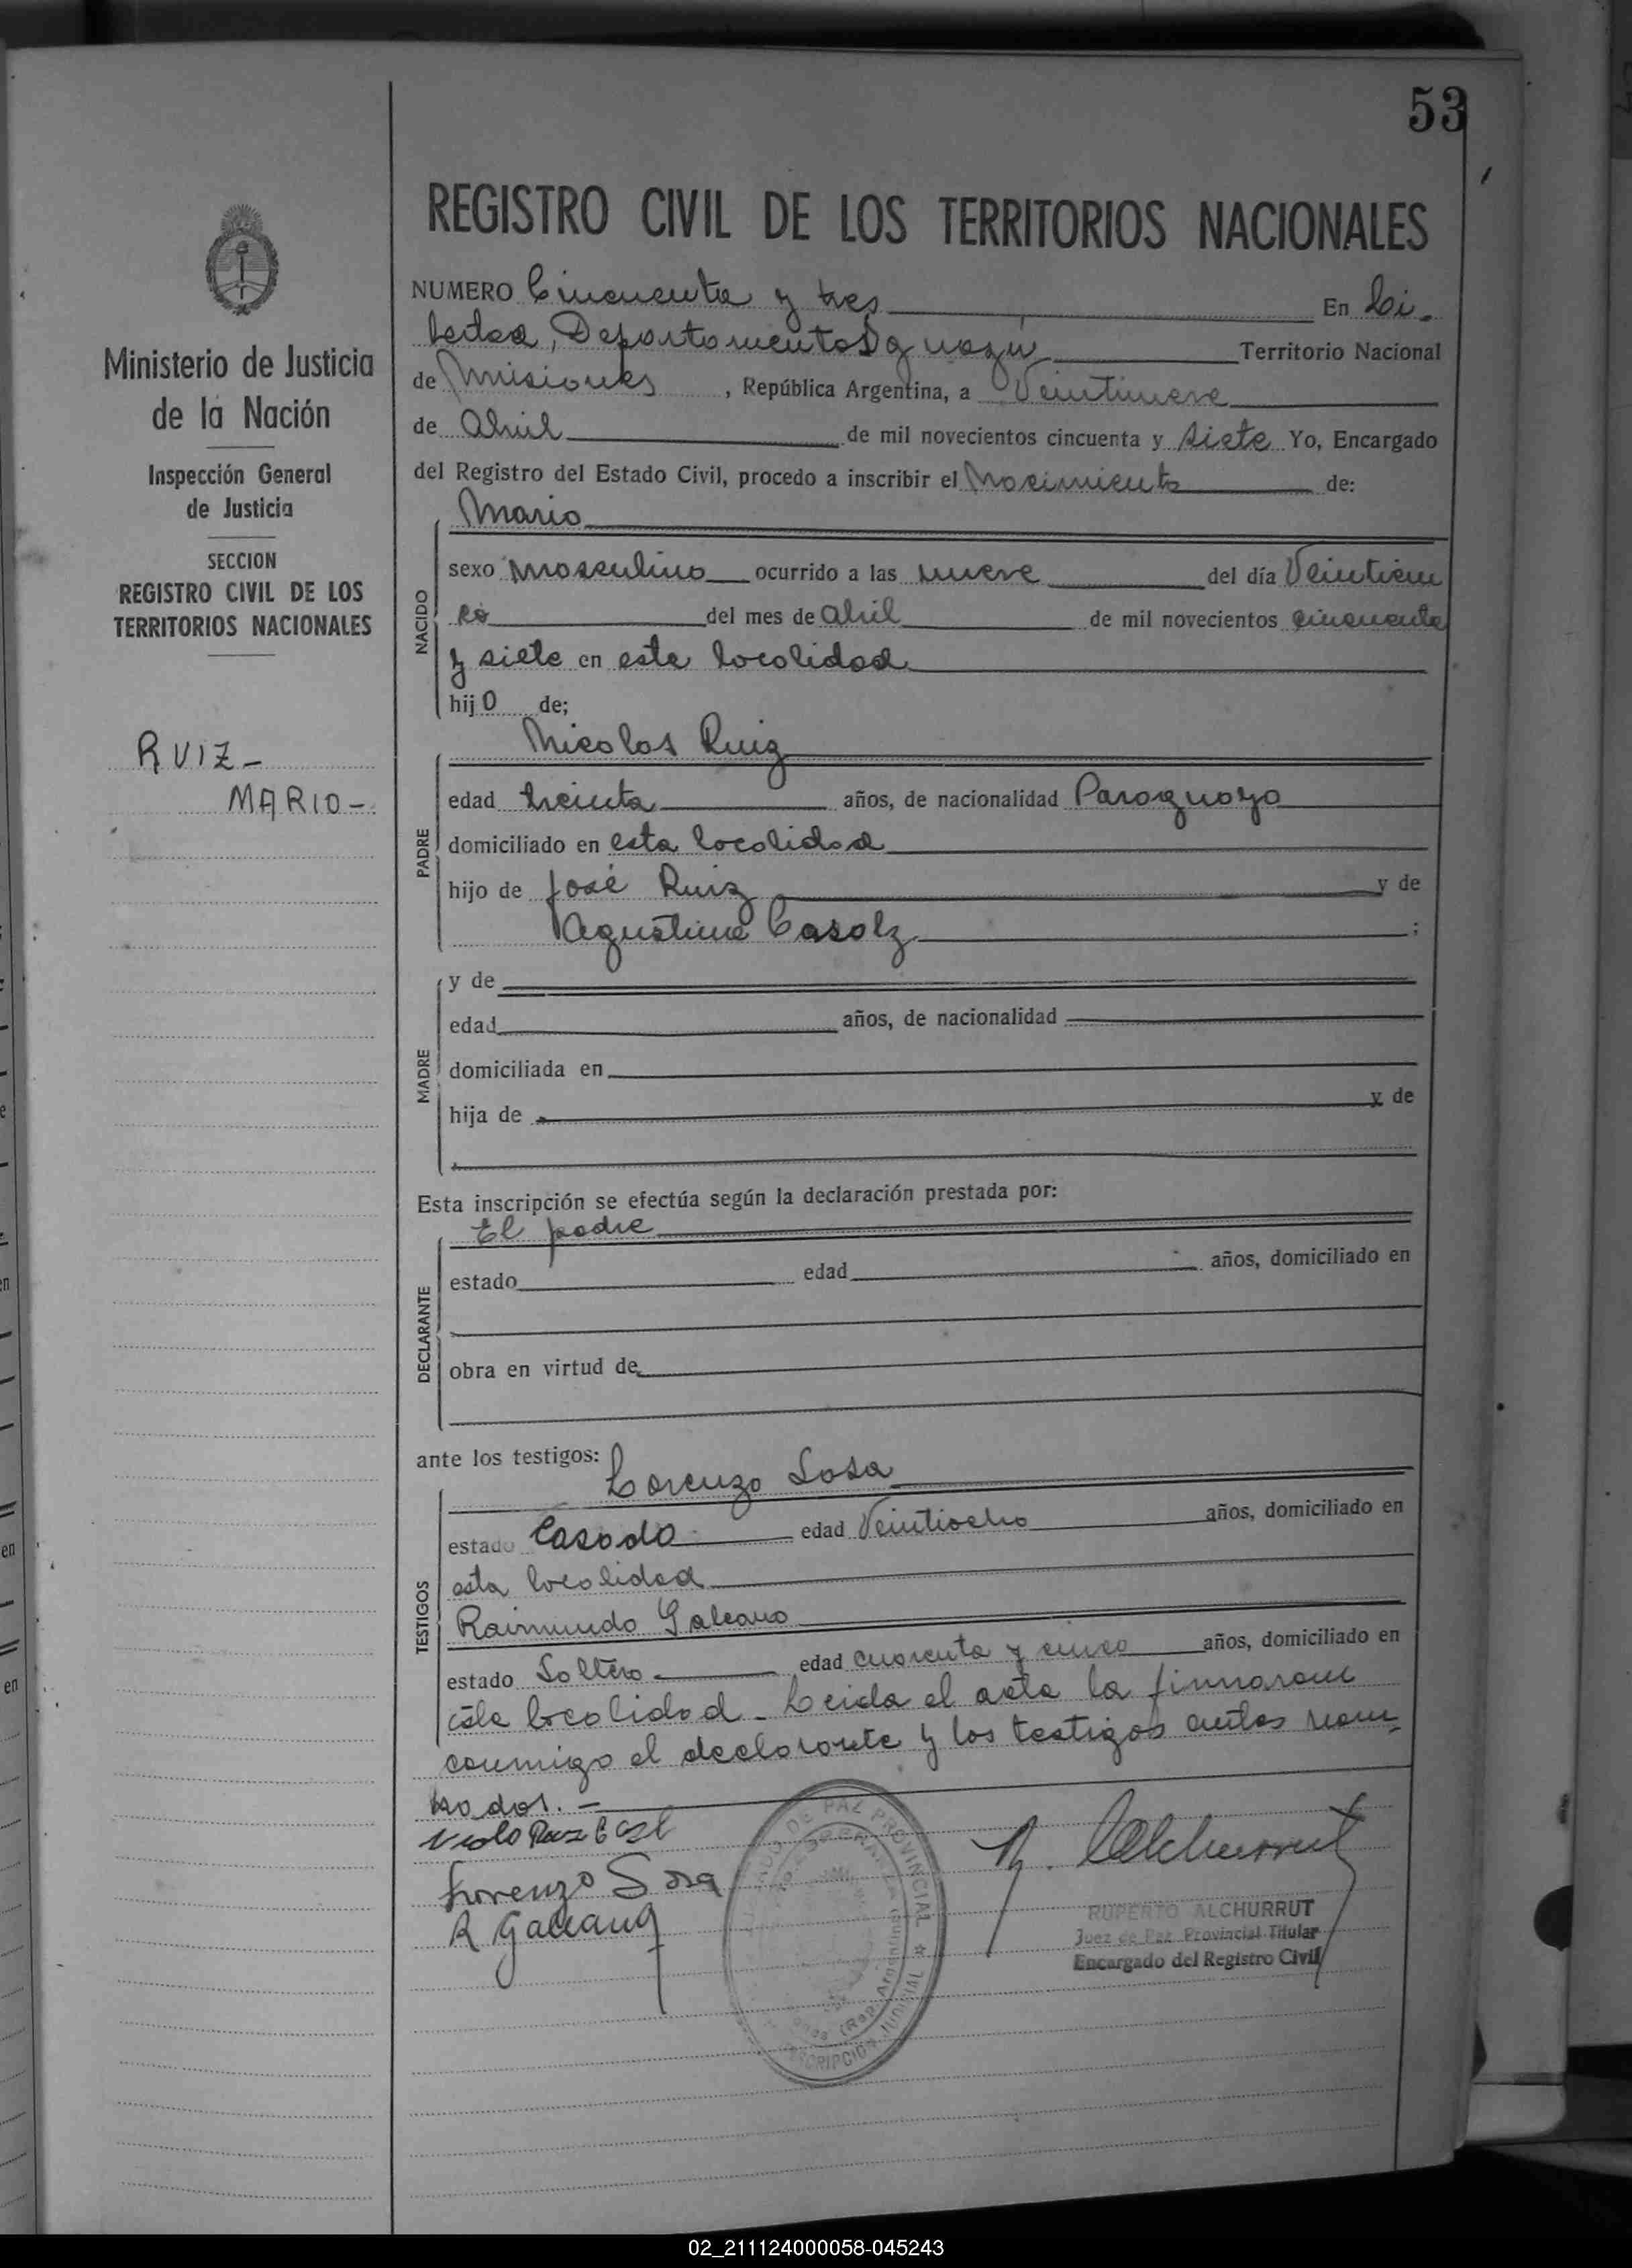 53
REGISTRO CIVIL DE LOS TERRITORIOS NACIONALES
Ministerio de Justicia
de la Nación
Inspección General
de Justicia
SECCION
REGISTRO CIVIL DE LOS
TERRITORIOS NACIONALES
RUIZ-
MARIO-
NUMERO Cincuenta y tres En Li-
bertad, Departamento Iguazú Territorio Nacional
de Misiones, República Argentina, a Veintinueve
de Abril de mil novecientos cincuenta y siete Yo, Encargado
del Registro del Estado Civil, procedo a inscribir el Nacimiento de:
NACIDO
Mario
sexo masculino ocurrido a las nueve del día
del mes de abril de mil novecientos cincuenta
y siete en esta localidad
hijo de;
PADRE
Nicolas Ruiz
edad treinta años, de nacionalidad Paraguayo
domiciliado en esta localidad
hijo de José Ruiz y de
Agustina ;
MADRE
y de
edad años, de nacionalidad
domiciliada en
hija de y de
Esta inscripción se efectúa según la declaración prestada por:
DECLARANTE
El padre
estado edad años, domiciliado en
obra en virtud de
ante los testigos: Lorenzo Sosa
TESTIGOS
estado Casado edad Veintiocho años, domiciliado en
esta localidad
Raimundo Galeano
estado Soltero edad cuarenta y cinco años, domiciliado en
esta localidad - Leida el acta la firmaron
conmigo el declarante y los testigos antes nom-
brados. -
Lorenzo Sosa
R Galeano
R. Alchurrut
DE PAZ PROVINCIAL
(Rep. Argentina)
JUDICIAL
RUPERTO ALCHURRUT
Juez de Paz Provincial Titular
Encargado del Registro Civil
02_211124000058-045243